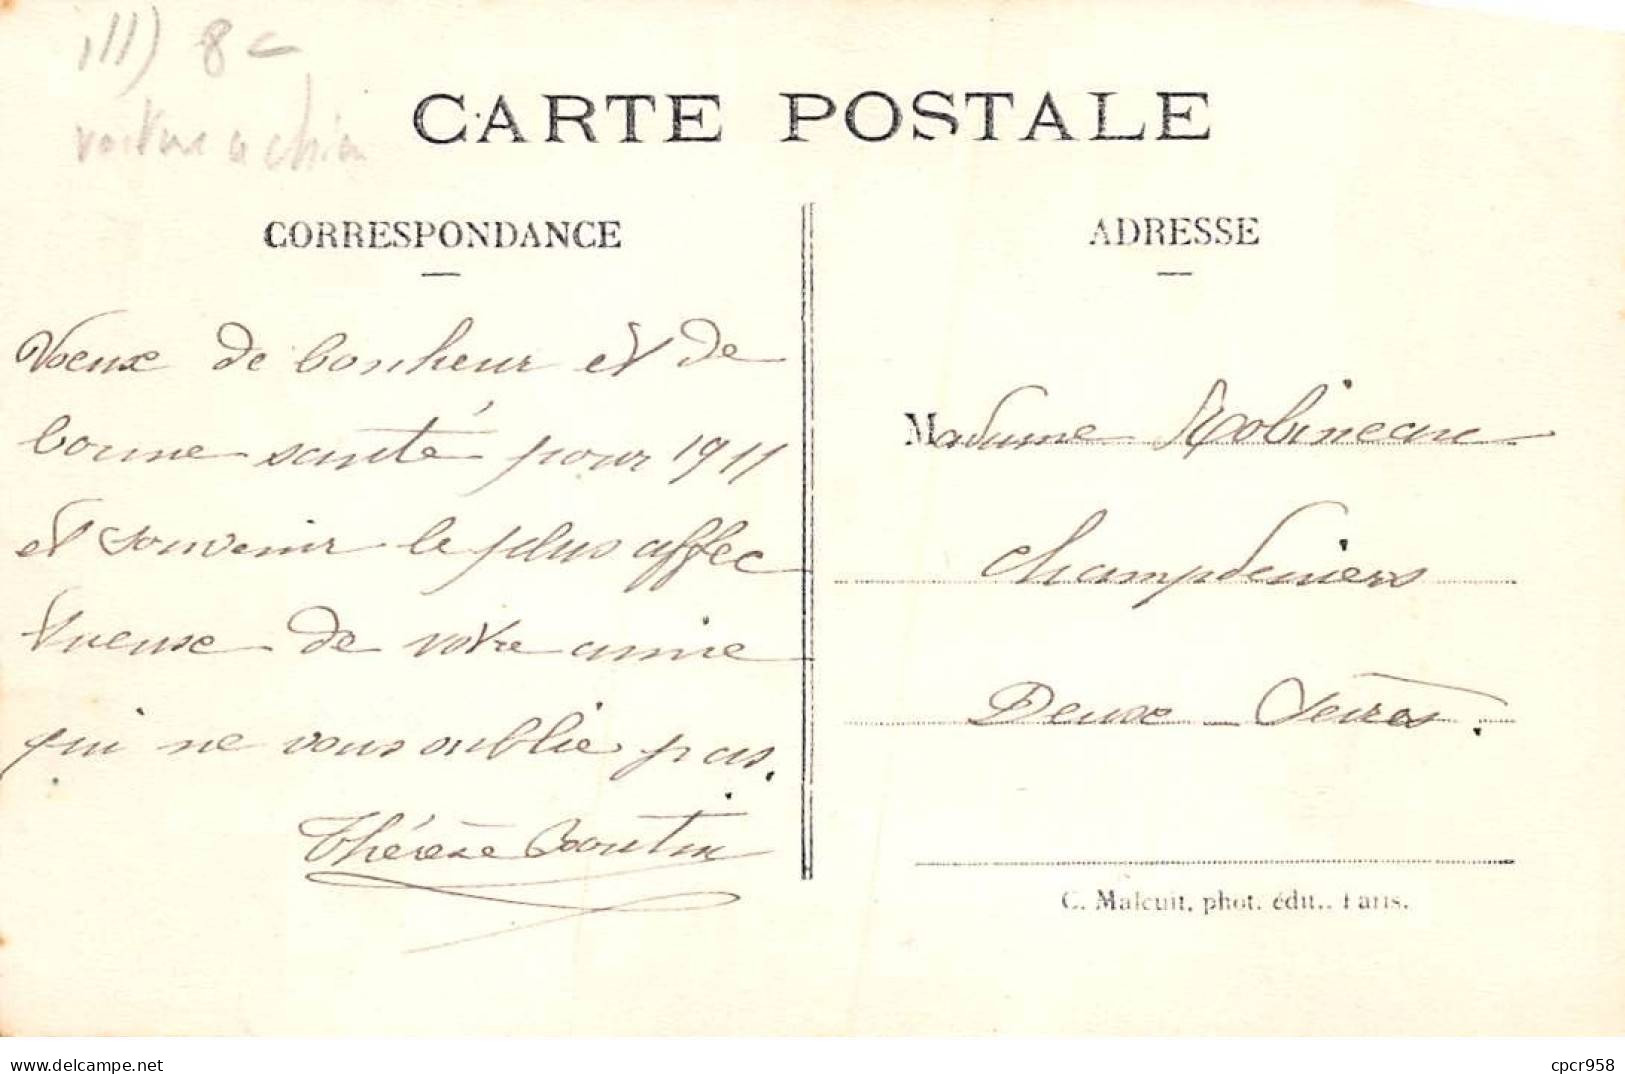 ill) 8
voiture a chien
CARTE POSTALE
CORRESPONDANCE
ADRESSE
Voeux de bonheur et de
bonne santé pour 1911
et souvenir le plus affec
tueuse de votre amie
qui ne vous oublie pas.
Thérèse Boutin
Madame Robineau
Champdeniers
Deux-Sèvres.
C. Malcuit, phot. édit., Paris.
delcampe.net
cpcr958